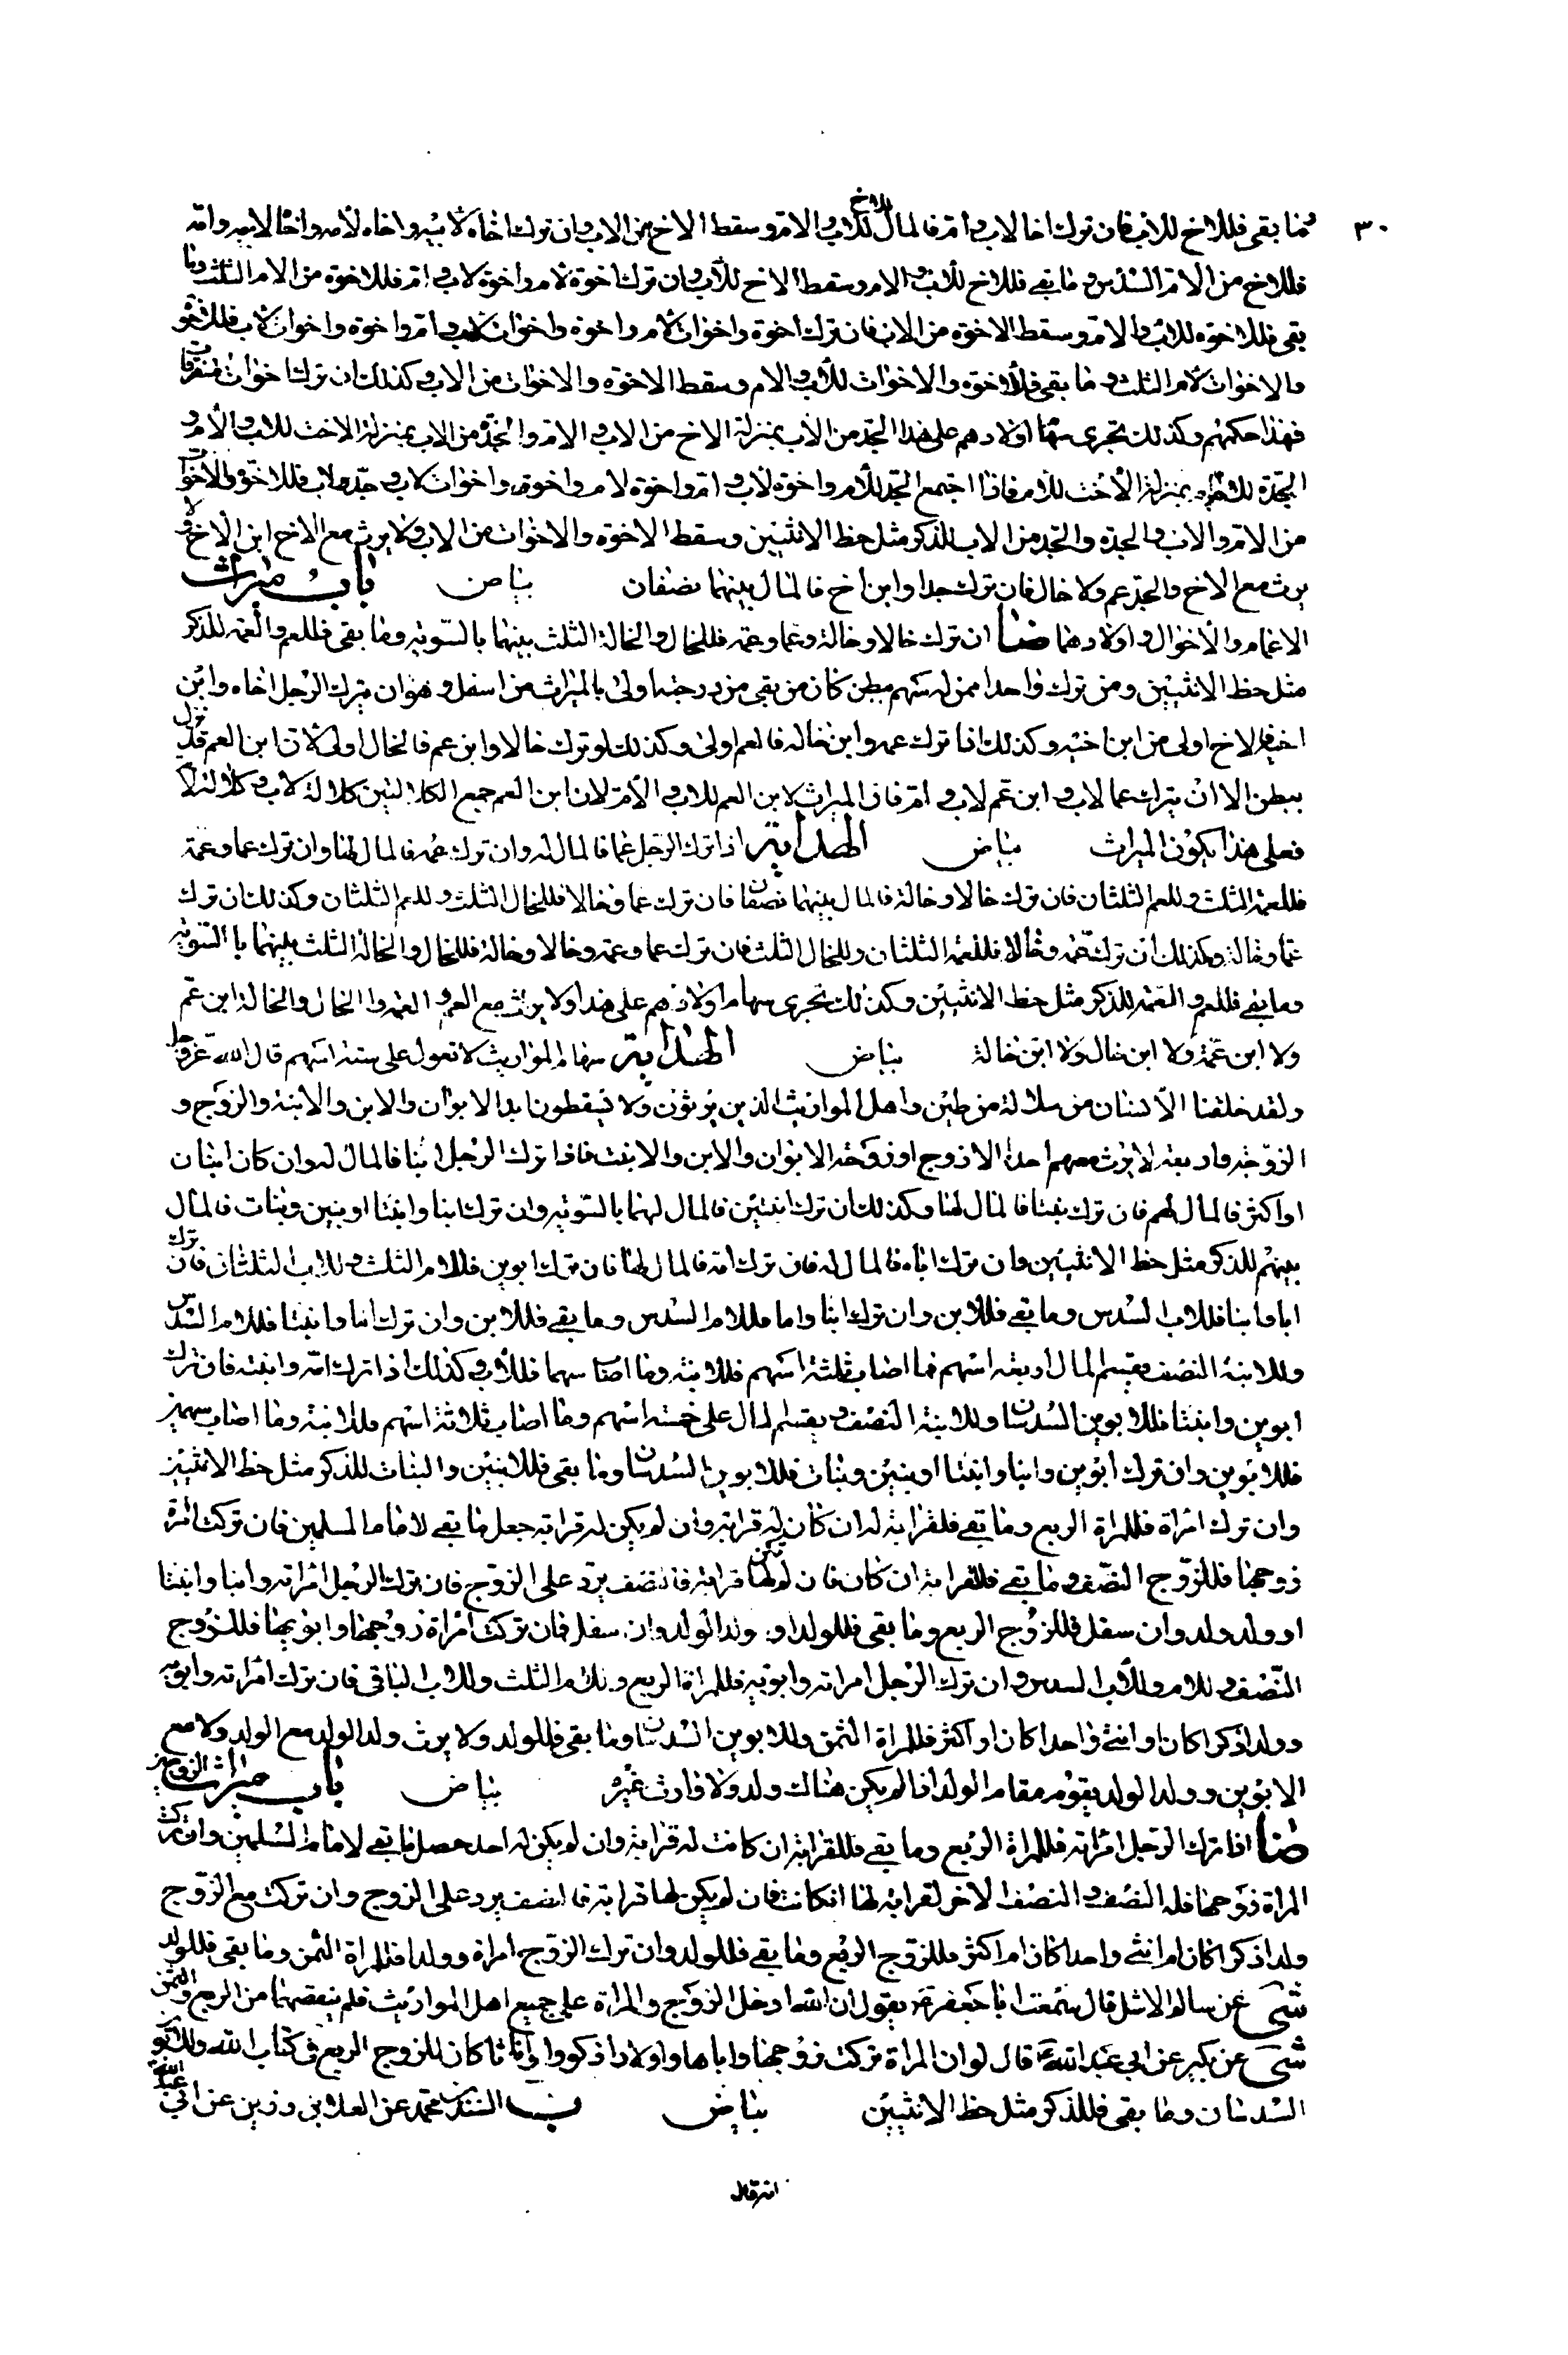 ٣٠
وما بقى فللاخ للاب فان ترك اخا لاب وام فالمال للاخ للاب والام وسقط الاخ من الاب وان ترك اخاه لابيه واخاه لامه واخا لابيه وامه
فللاخ من الام السدس وما بقى فللاخ للاب والام وسقط الاخ للاب وان ترك اخوة لام واخوة لاب وام فللاخوة من الام الثلث وما
بقى فللاخوة للاب والام وسقط الاخوة من الاب فان ترك اخوة واخوات لام واخوة واخوات لاب وام واخوة واخوات لاب فللاخوة
والاخوات لام الثلث وما بقى فللاخوة والاخوات للاب والام وسقط الاخوة والاخوات من الاب وكذلك ان ترك اخوات متفرقات
فهذا حكمهم وكذلك تجرى سهام اولادهم على هذا الجد من الاب بمنزلة الاخ من الاب والام والجدة من الاب بمنزلة الاخت للاب والام و
الجدة للام بمنزلة الاخت للام فاذا اجتمع الجد للام واخوة لاب وام واخوة لام واخوة واخوات لاب وجد لاب فللاخوة والاخوات
من الام والاب والجدة والجد من الاب للذكر مثل حظ الانثيين وسقط الاخوة والاخوات من الاب ولا يرث مع الاخ ابن الاخ ولا
يرث مع الاخ والجد عم ولا خال فان ترك جدا وابن اخ فالمال بينهما نصفان بياض باب ميراث
الاعمام والاخوال واولادهما ضا ان ترك خالا وخالة وعما وعمة فللخال والخالة الثلث بينهما بالسوية وما بقى فللعم والعمة للذكر
مثل حظ الانثيين ومن ترك واحدا ممن له سهم ببطن كان من بقى من درجته اولى بالميراث من اسفل وهو ان يترك الرجل اخاه وابن
اخيه فالاخ اولى من ابن اخيه وكذلك اذا ترك عمه وابن خاله فالعم اولى وكذلك لو ترك خالا وابن عم فالخال اولى لان ابن العم قد نزل
ببطن الا ان يترك عما لاب وابن عم لاب وام فان الميراث لابن العم للاب والام لان ابن العم جمع الكلالتين كلالة لاب وكلالة لام
فعلى هذا يكون الميراث بياض الهداية اذا ترك الرجل عما فالمال له وان ترك عمة فالمال لها وان ترك عما وعمة
فللعمة الثلث وللعم الثلثان فان ترك خالا وخالة فالمال بينهما نصفان فان ترك عما وخالا فللخال الثلث وللعم الثلثان وكذلك ان ترك
عما وخالة وكذلك ان ترك عمة وخالا فللعمة الثلثان وللخال الثلث فان ترك عما وعمة وخالا وخالة فللخال والخالة الثلث بينهما بالسوية
وما بقى فللعم والعمة للذكر مثل حظ الانثيين وكذلك تجرى سهام اولادهم على هذا ولا يرث مع العم والعمة والخال والخالة ابن عم
ولا ابن عمة ولا ابن خال ولا ابن خالة بياض الهداية سهام المواريث لا تعول على ستة اسهم قال الله عز وجل
ولقد خلقنا الانسان من سلالة من طين واهل المواريث الذين يرثون ولا يسقطون ابدا الابوان والابن والابنة والزوج و
الزوجة واربعة لا يرث معهم احد الا زوج او زوجة الابوان والابن والابنة فاذا ترك الرجل ابنا فالمال له وان كان ابنان
او اكثر فالمال لهم فان ترك بنتا فالمال لها وكذلك ان ترك ابنتين فالمال لهما بالسوية وان ترك ابنا وابنتا او بنين وبنات فالمال
بينهم للذكر مثل حظ الانثيين وان ترك اباه فالمال له فان ترك امه فالمال لها فان ترك ابوين فللام الثلث وللاب الثلثان فان ترك
ابا وابنا فللاب السدس وما بقى فللابن وان ترك ابنا واما فللام السدس وما بقى فللابن وان ترك اما وابنتا فللام السدس
وللابنة النصف يقسم المال اربعة اسهم فما اصاب ثلثة اسهم فللابنة وما اصاب سهما فللاب وكذلك اذا ترك امه وابنته فان ترك
ابوين وابنتا فللابوين السدسان وللابنة النصف يقسم المال على خمسة اسهم وما اصاب ثلاثة اسهم فللابنة وما اصاب سهمين
فللابوين وان ترك ابوين وابنا وابنتا او بنين وبنات فللابوين السدسان وما بقى فللبنين والبنات للذكر مثل حظ الانثيين
وان ترك امراة فللمراة الربع وما بقى فلقرابة له ان كان له قرابة وان لم يكن له قرابة جعل ما بقى لامام المسلمين فان تركت امراة
زوجها فللزوج النصف وما بقى فللقرابة ان كان فان لم يكن لها قرابة فالنصف يرد على الزوج فان ترك الرجل امراته وابنا وابنتا
او ولد ولد وان سفل فللزوج الربع وما بقى فللولد او ولد الولد وان سفل فان تركت امراة زوجها وابويها فللزوج
النصف وللام وللاب السدس وان ترك الرجل امراته وابويه فللمراة الربع وللام الثلث وللاب الباقى فان ترك امراته وابويه
وولدا ذكرا كان او انثى واحدا كان او اكثر فللمراة الثمن وللابوين السدسان وما بقى فللولد ولا يرث ولد الولد مع الولد ولا مع
الابوين وولد الولد يقوم مقام الولد اذا لم يكن هناك ولد ولا وارث غيره بياض باب ميراث الزوجين
ضا اذا ترك الرجل امراته فللمراة الربع وما بقى فللقرابة ان كانت له قرابة وان لم يكن له احد حصل ما بقى لامام المسلمين وان تركت
المراة زوجها فله النصف والنصف الاخر لقرابة لها ان كانت فان لم يكن لها قرابة فالنصف يرد على الزوج وان تركت مع الزوج
ولدا ذكرا كان ام انثى واحدا كان ام اكثر فللزوج الربع وما بقى فللولد وان ترك الزوج امراة وولدا فللمراة الثمن وما بقى فللولد
شى عن سالم الاشل قال سمعت ابا جعفر يقول ان الله ادخل الزوج والمراة على جميع اهل المواريث فلم ينقصهما من الربع والثمن
شى عن بكير عن ابى عبد الله قال لو ان المراة تركت زوجها واباها واولادا ذكورا واناثا كان للزوج الربع فى كتاب الله وللابوين
السدسان وما بقى فللذكر مثل حظ الانثيين بياض يب السندى محمد عن العلا بن رزين عن ابى عبد الله
انه قال